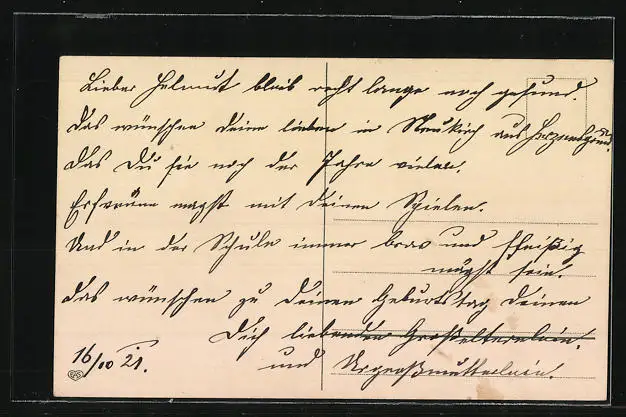 Lieber Helmut bleib recht lange noch gesund.
Das wünschen deine lieben in Neukirch aus Herzensgrund.
Das Du sie noch der Jahre viele.
Erfreuen magst mit deinen Spielen.
Und in der Schule immer brav und fleißig
mögst sein.
Das wünschen zu Deinem Geburtstag Deinen
Dich liebenden Großelterelein.
und Urgroßmutterlein.
16/10 21.